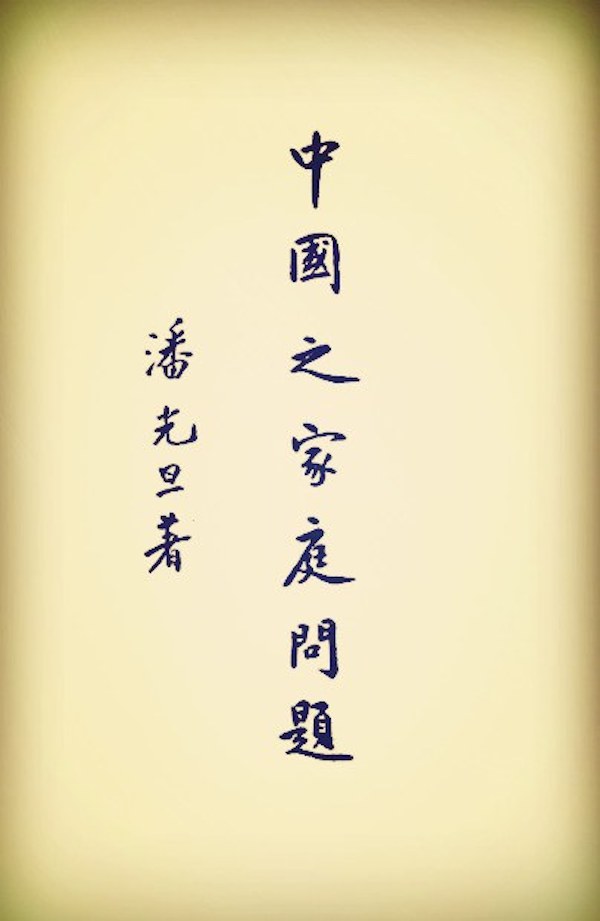 中國之家庭問題
潘光旦著